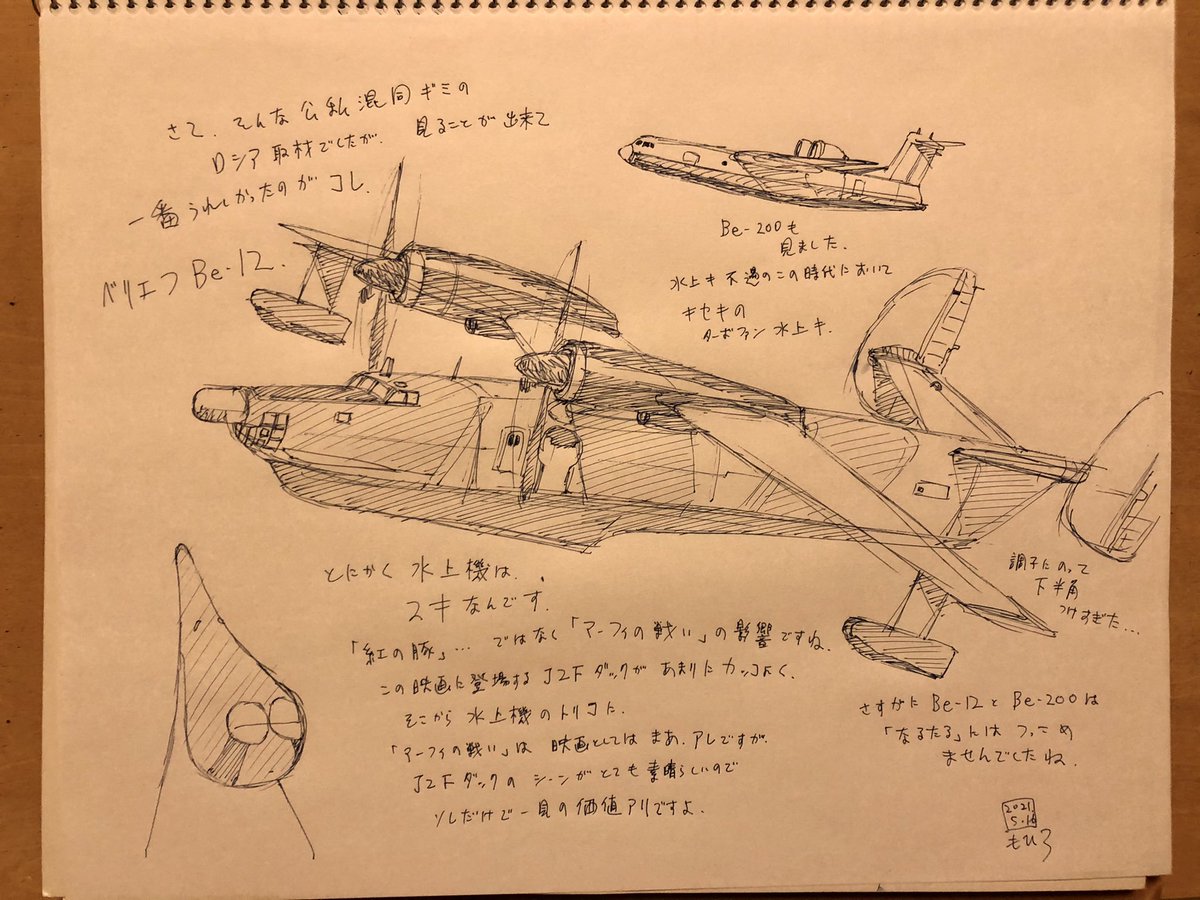 さて、そんな公私混同ギミの
ロシア取材でしたが、見ることが出来て
一番うれしかったのがコレ.
ベリエフ Be-12.
Be-200も
見ました.
水上キ不遇のこの時代において
キセキの
ターボファン水上キ.
とにかく水上機は、
スキなんです.
「紅の豚」… ではなく「アーフィの戦い」の影響ですね.
この映画に登場するJ2Fダックがあまりにカッコよく、
そこから水上機のトリコに.
「アーフィの戦い」は映画としてはまあ、アレですが、
J2Fダックのシーンがとても素晴らしいので
ソレだけで一見の価値アリですよ.
調子にのって
下半角
つけすぎた…
さすがにBe-12とBe-200は
「なるたる」んは つっこめ
ませんでしたね.
2021.
5.16
もひろ